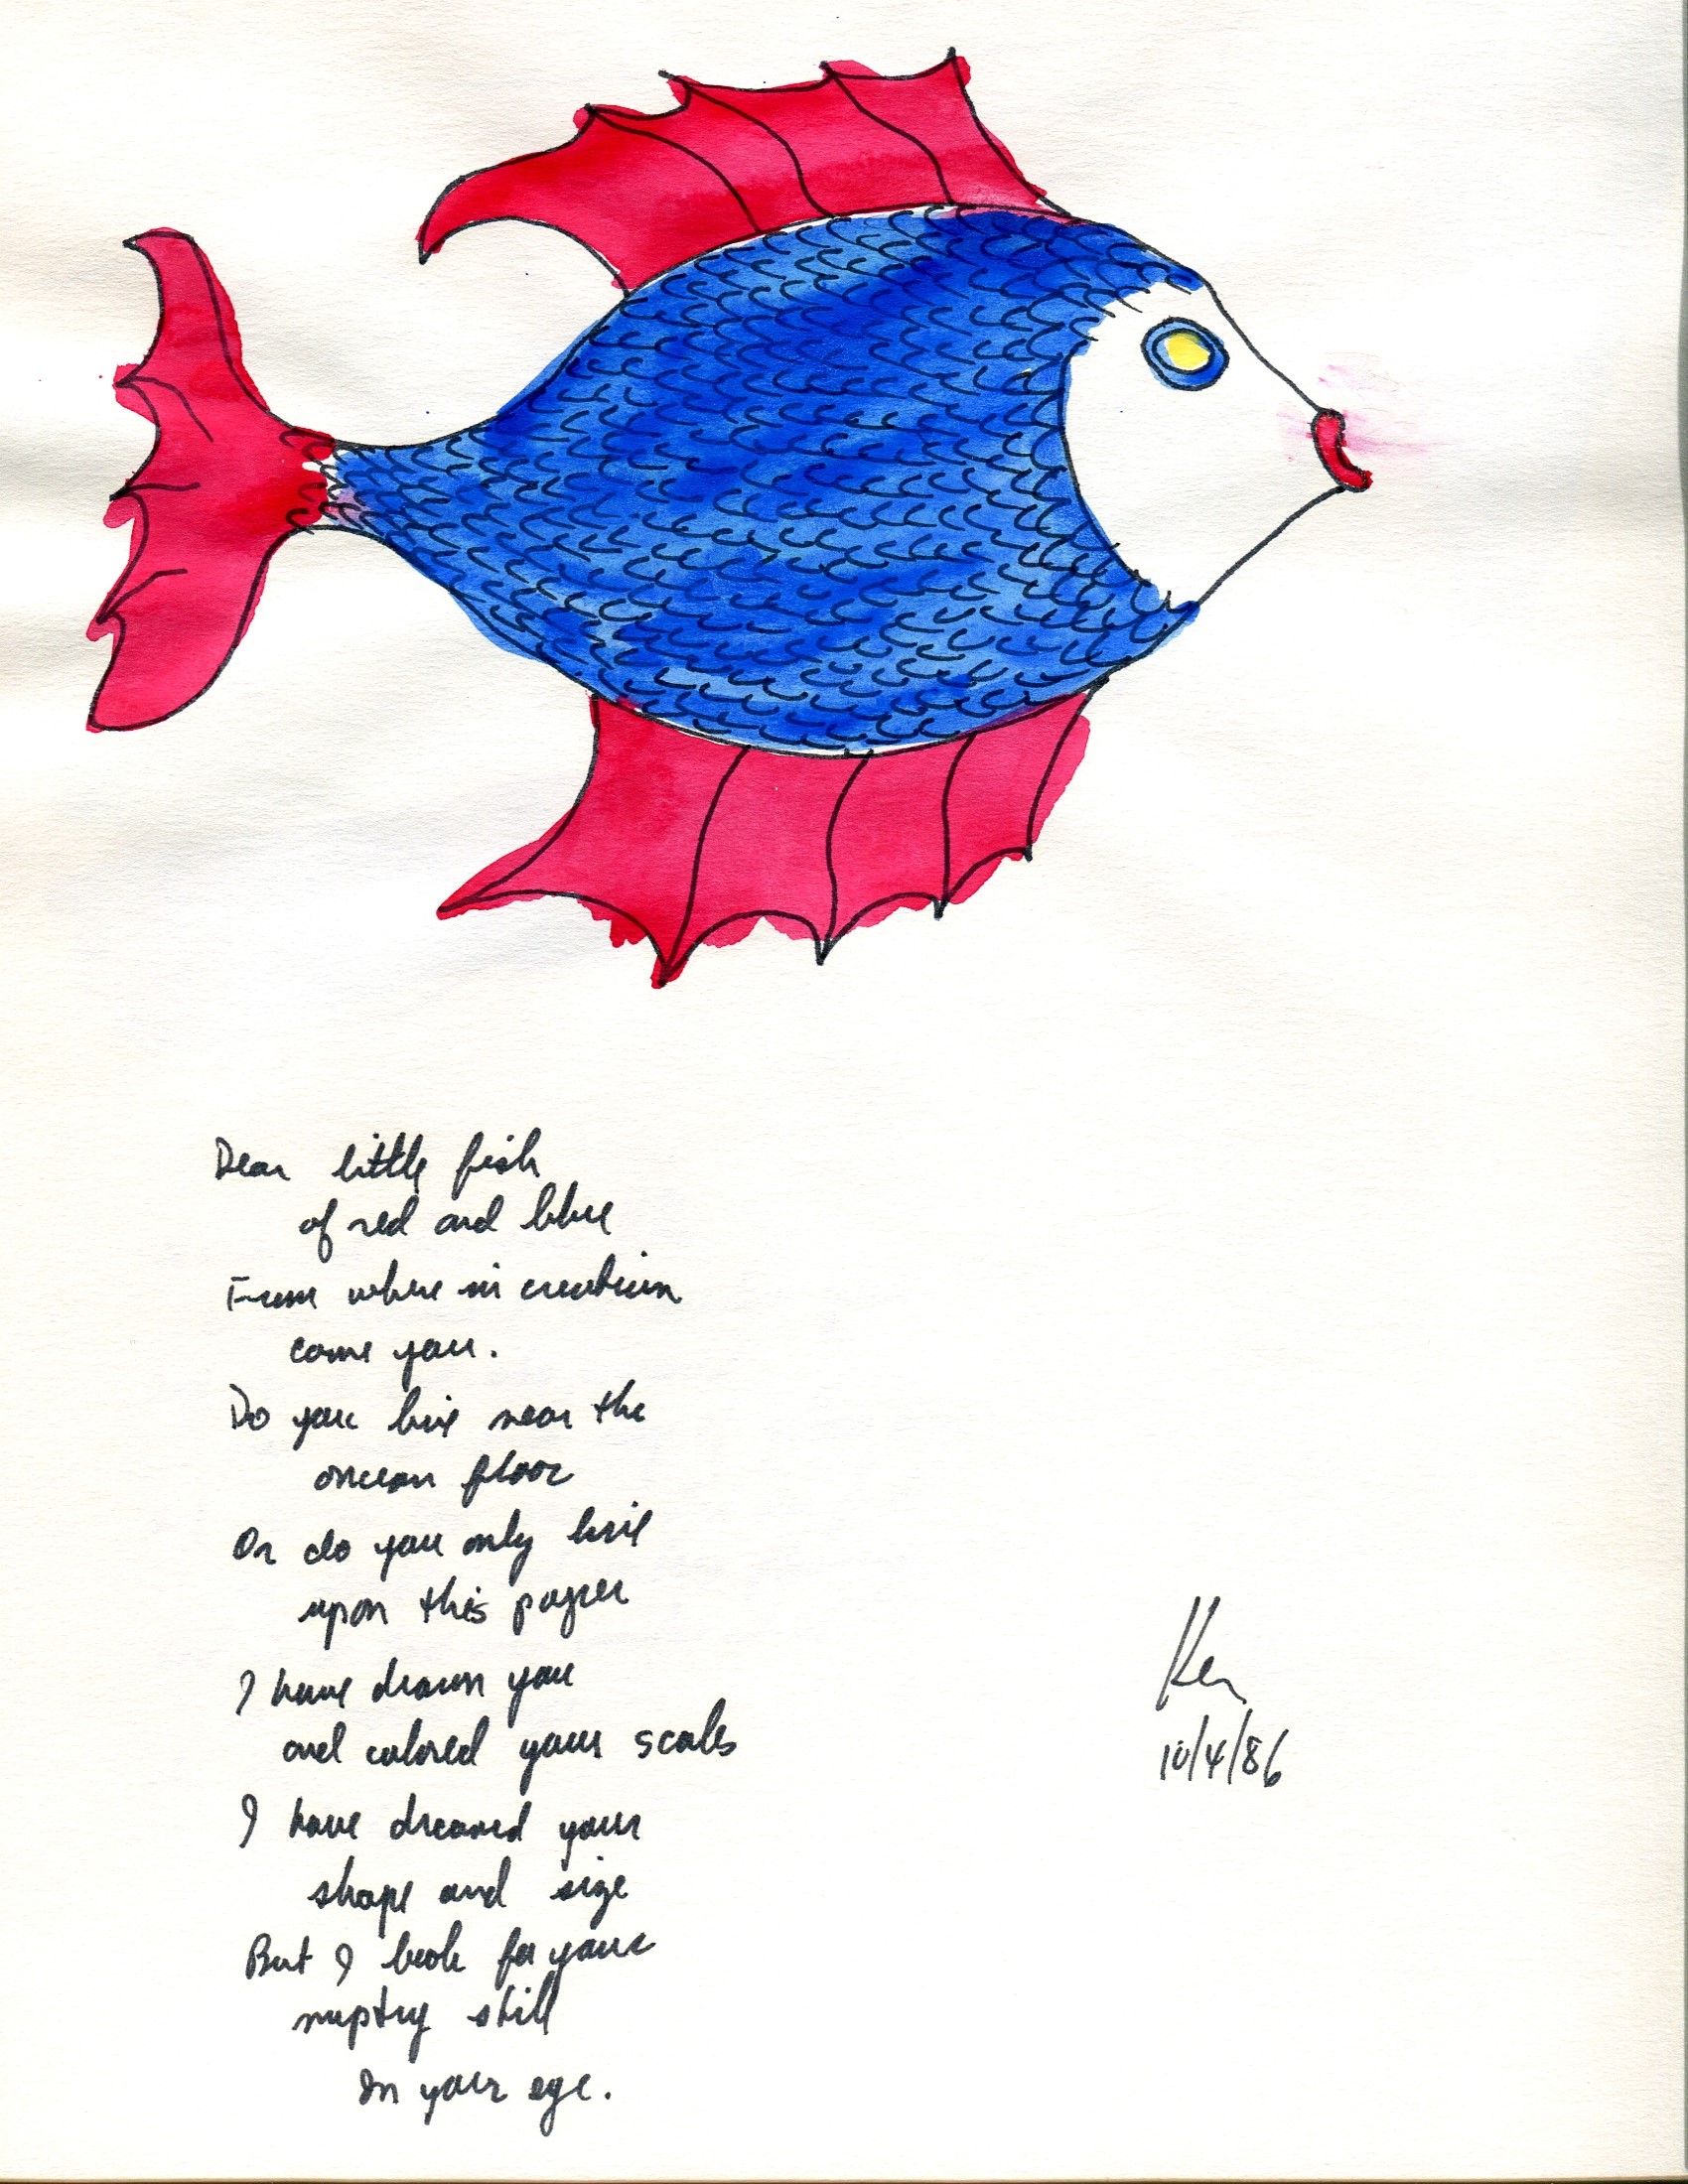 Dear little fish
of red and blue
From where in creation
come you.
Do you live near the
oncean floor
Or do you only live
upon this paper
I have drawn you
and colored your scales
I have dreamed your
shape and size
But I look for your
still
In your eye.
Ken
10/4/86